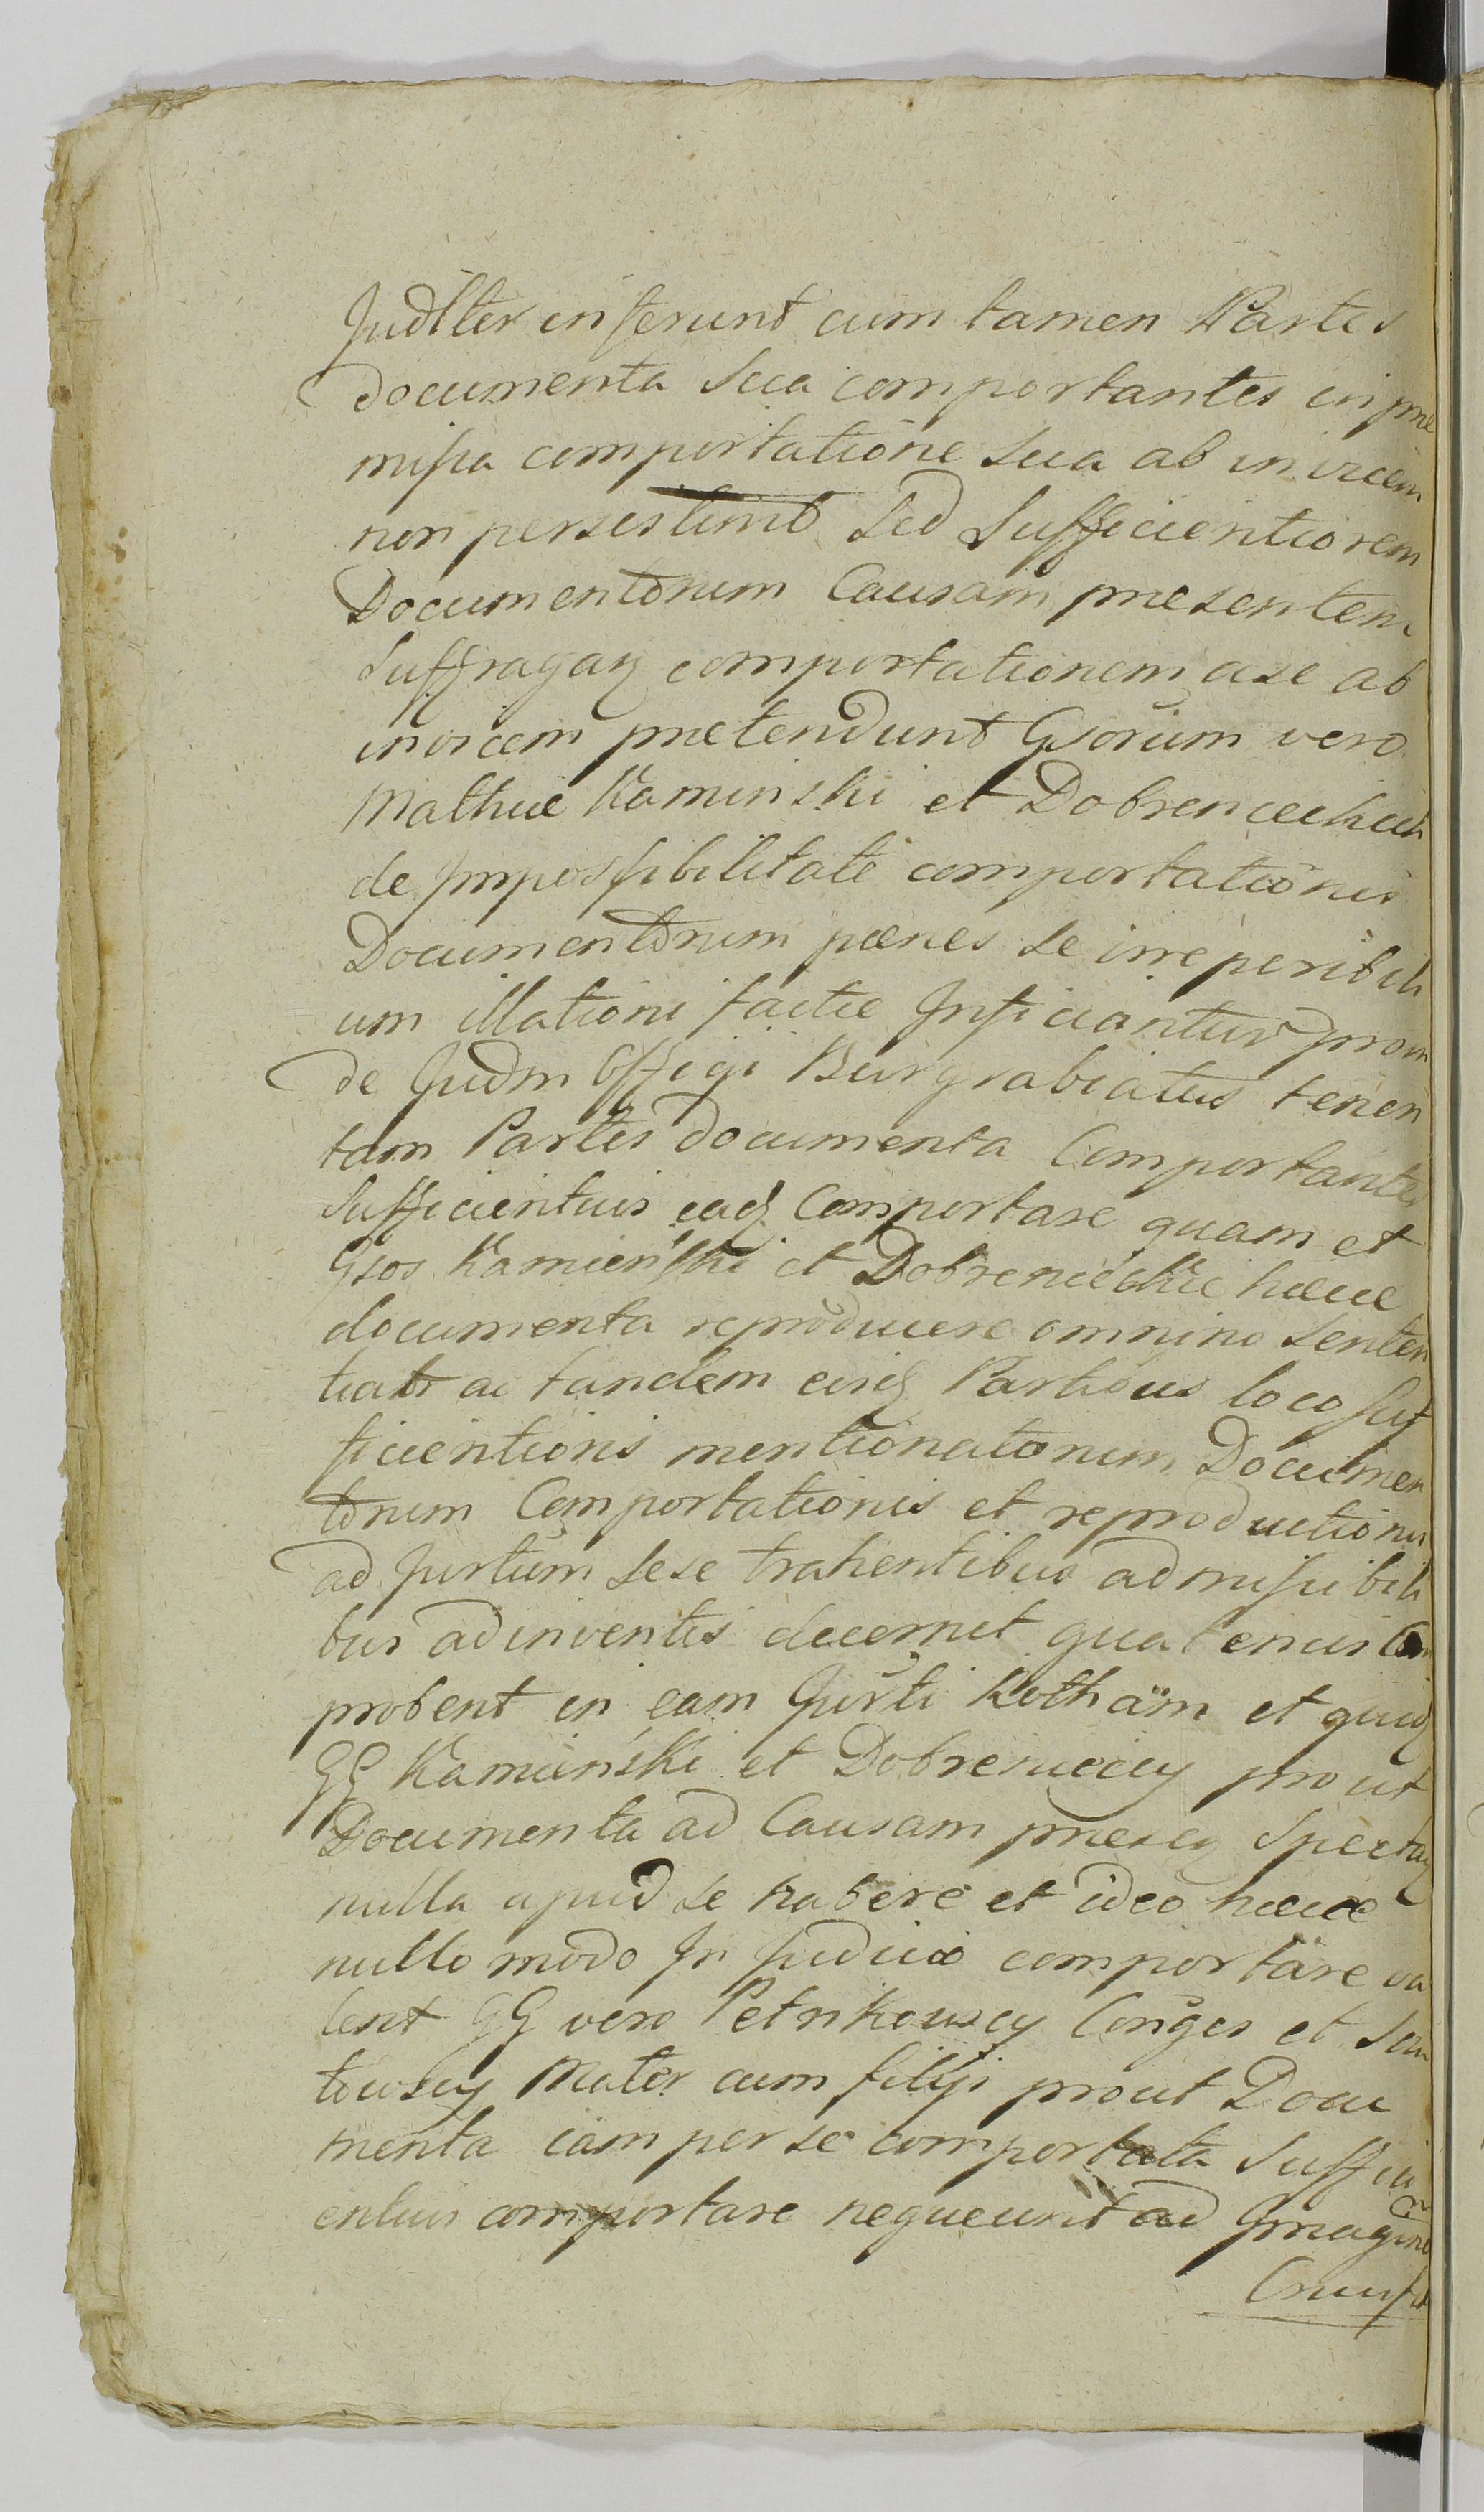 Judlter inferunt cum tamen Partes
documenta sua comportantes in præ
missa comportatione sua ab invicem
non persistunt sed sufficientiorem
Documentorum Causam præsentem
suffragaꝫ comportationem a se ab
invicem prætendunt Gsorum vero
Mathiæ Kaminski et Dobreniecki
de Impossibilitate comportationis
Documentorum pænes se irreperibili
um illationi factæ Inficiantur proin
de Judm Officii Burgrabiatus tenen
tam Partes documenta Comportantes
sufficientius eadꝫ Comportare quam et
Gsos Kamieński et Dobreniecki hæcce
documenta reproducere omnino senten
tiatr ac tandem eisdꝫ Partibus loco suf
ficientioris mentionatorum Documen
torum Comportationis et reproductionis
ad Jurtum sese trahentibus admissibili
bus adinventis decernit quatenus Com
probent in eam Jurti Rotham et quidꝫ
GG Kamieński et Dobreniecicy prout
Documenta ad Causam præseꝫ spectaꝫ
nulla apud se habere et ideo hæcce
nullo modo In Judicio comportare va
lent GG vero Petrikowscy Conges et
towscy Mater cum filiji prout Docu
menta iam per se comportata suffici
entius comportare nequeunt ad Imaginem
Crucifix